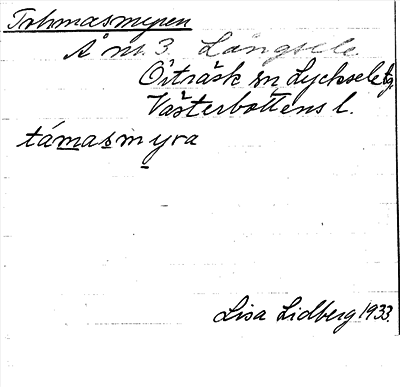 Tohmasmyren
Å nr. 3 Långsele
Örträsk sn Lycksele tg
Västerbottens l.
támasmyra
Lisa Lidberg 1933.